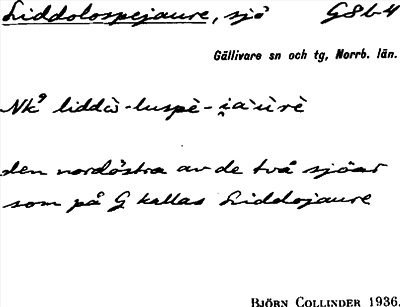 Liddolospejaure, sjö G8b4
Gällivare sn och tg, Norrb. län.
Nk⁹ liddò̤-luspè-i̯a`ùrè
den nordöstra av de två sjöar
som på G kallas Liddojaure
BJÖRN COLLINDER 1936.